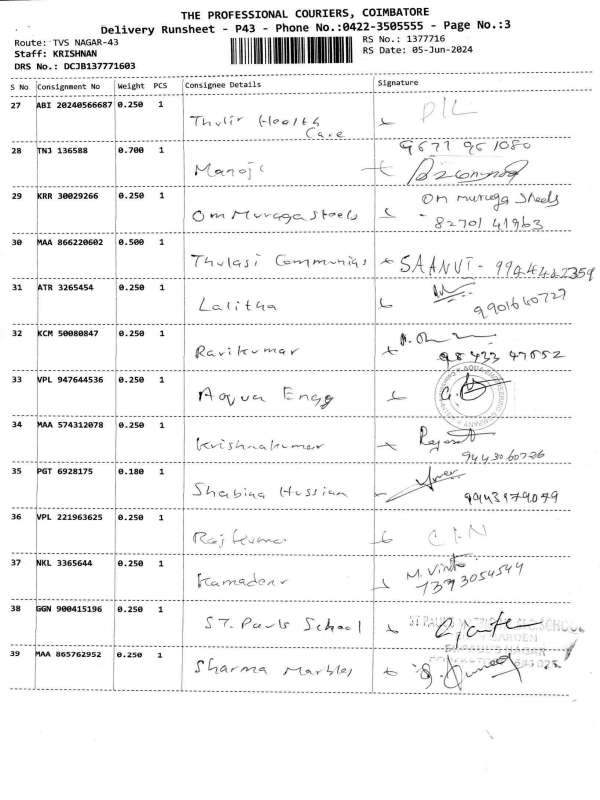 THE PROFESSIONAL COURIERS, COIMBATORE
Delivery Runsheet - P43 - Phone No.:0422-3505555 - Page No.:3
Route: TVS NAGAR-43
RS No.: 1377716
Staff: KRISHNAN
RS Date: 05-Jun-2024
DRS No.: DCJB137771603
S No Consignment No Weight PCS Consignee Details Signature
27 ABI 20240566687 0.250 1
Thulir Health
Care
28 TNJ 136588 0.700 1
9677 961080
Manoj
29 KRR 30029266 0.250 1
Om Muruga Steels
Om Muruga Steels
82701 41963
30 MAA 866220602 0.500 1
Thulasi SAANVI - 9944442359
31 ATR 3265454 0.250 1
Lalitha
9901660727
32 KCM 50080847 0.250 1
Ravikumar
98433 47652
33 VPL 947644536 0.250 1
Aqua Engg
34 MAA 574312078 0.250 1
Krishnakumar
9443060726
35 PGT 6928175 0.180 1
Shabina Hussian
9943179079
36 VPL 221963625 0.250 1
Rajkumar
37 NKL 3365644 0.250 1
M. Vinoth
7373054544
38 GGN 900415196 0.250 1
ST. Pauls School
39 MAA 865762952 0.250 1
Sharma Marbles